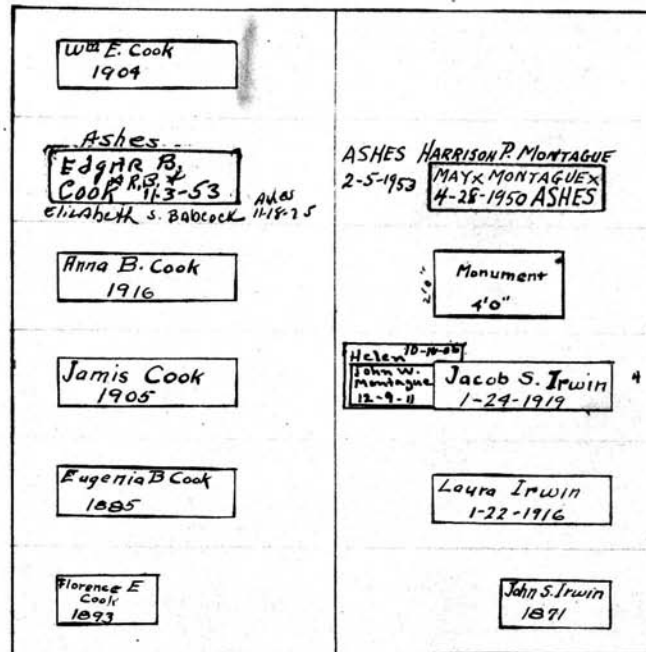 Wm E. Cook
1904
Ashes
EdgAR B,
A R, B,
COOK 11-3-53
Elizabeth S. Babcock Ashes
11-18-75
Anna B. Cook
1916
Jamis Cook
1905
Eugenia B Cook
1885
Florence E
Cook
1893
ASHES HARRISON P. MONTAGUE
2-5-1953
MAY x MONTAGUE x
4-28-1950 ASHES
Monument
2'0"
4'0"
Helen
John W.
Montague
12-9-11
Jacob S. Irwin
1-24-1919
4
Laura Irwin
1-22-1916
John S. Irwin
1871